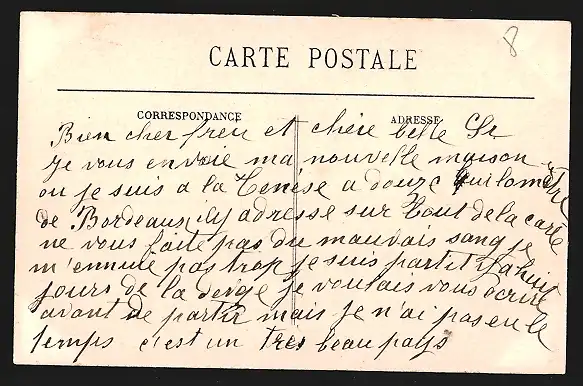 8
CARTE POSTALE
CORRESPONDANCE
ADRESSE
Bien cher freu et chère belle Sr
Je vous envoie ma nouvelle maison
ou je suis a la a douze quilomètre
de Bordeaux adresse sur tout de la carte
ne vous faite pas du mauvais sang je
m'ennuie pas trop je suis partit ya huit
jours de la je voulais vous écrire
avant de partir mais je n'ai pas eu le
temps c'est un tres beau pays